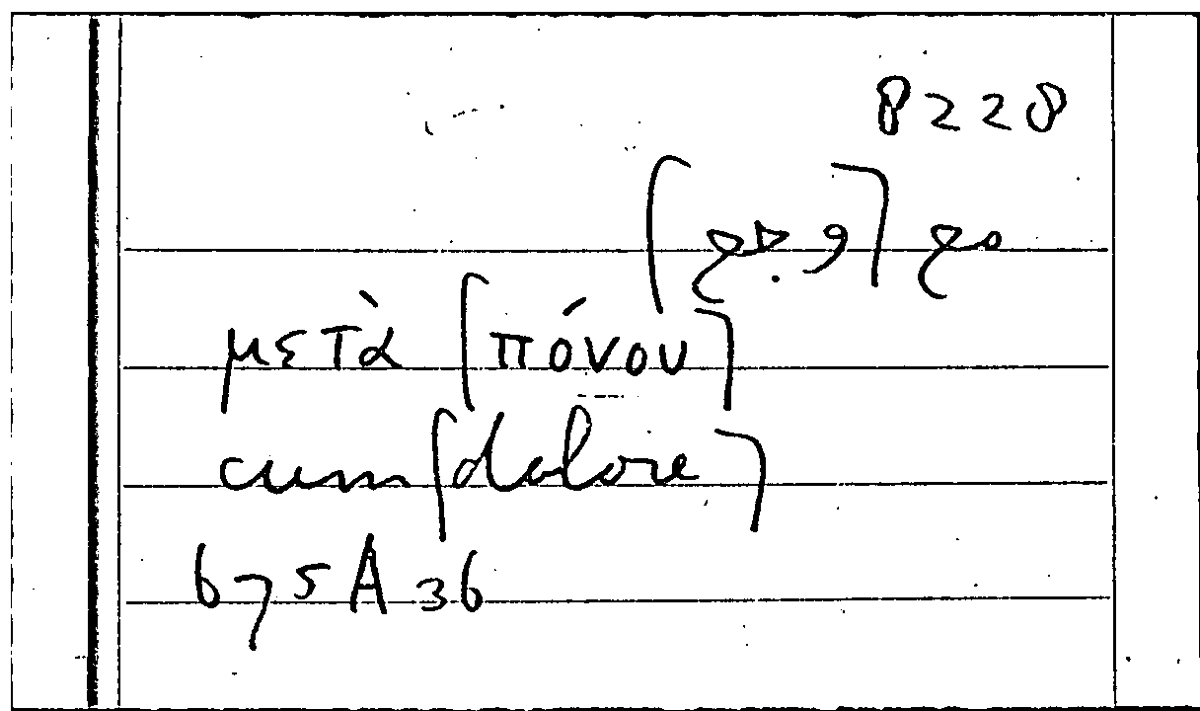 8228
مع [وجع]
μετὰ [πόνου]
cum [dolore]
675A36